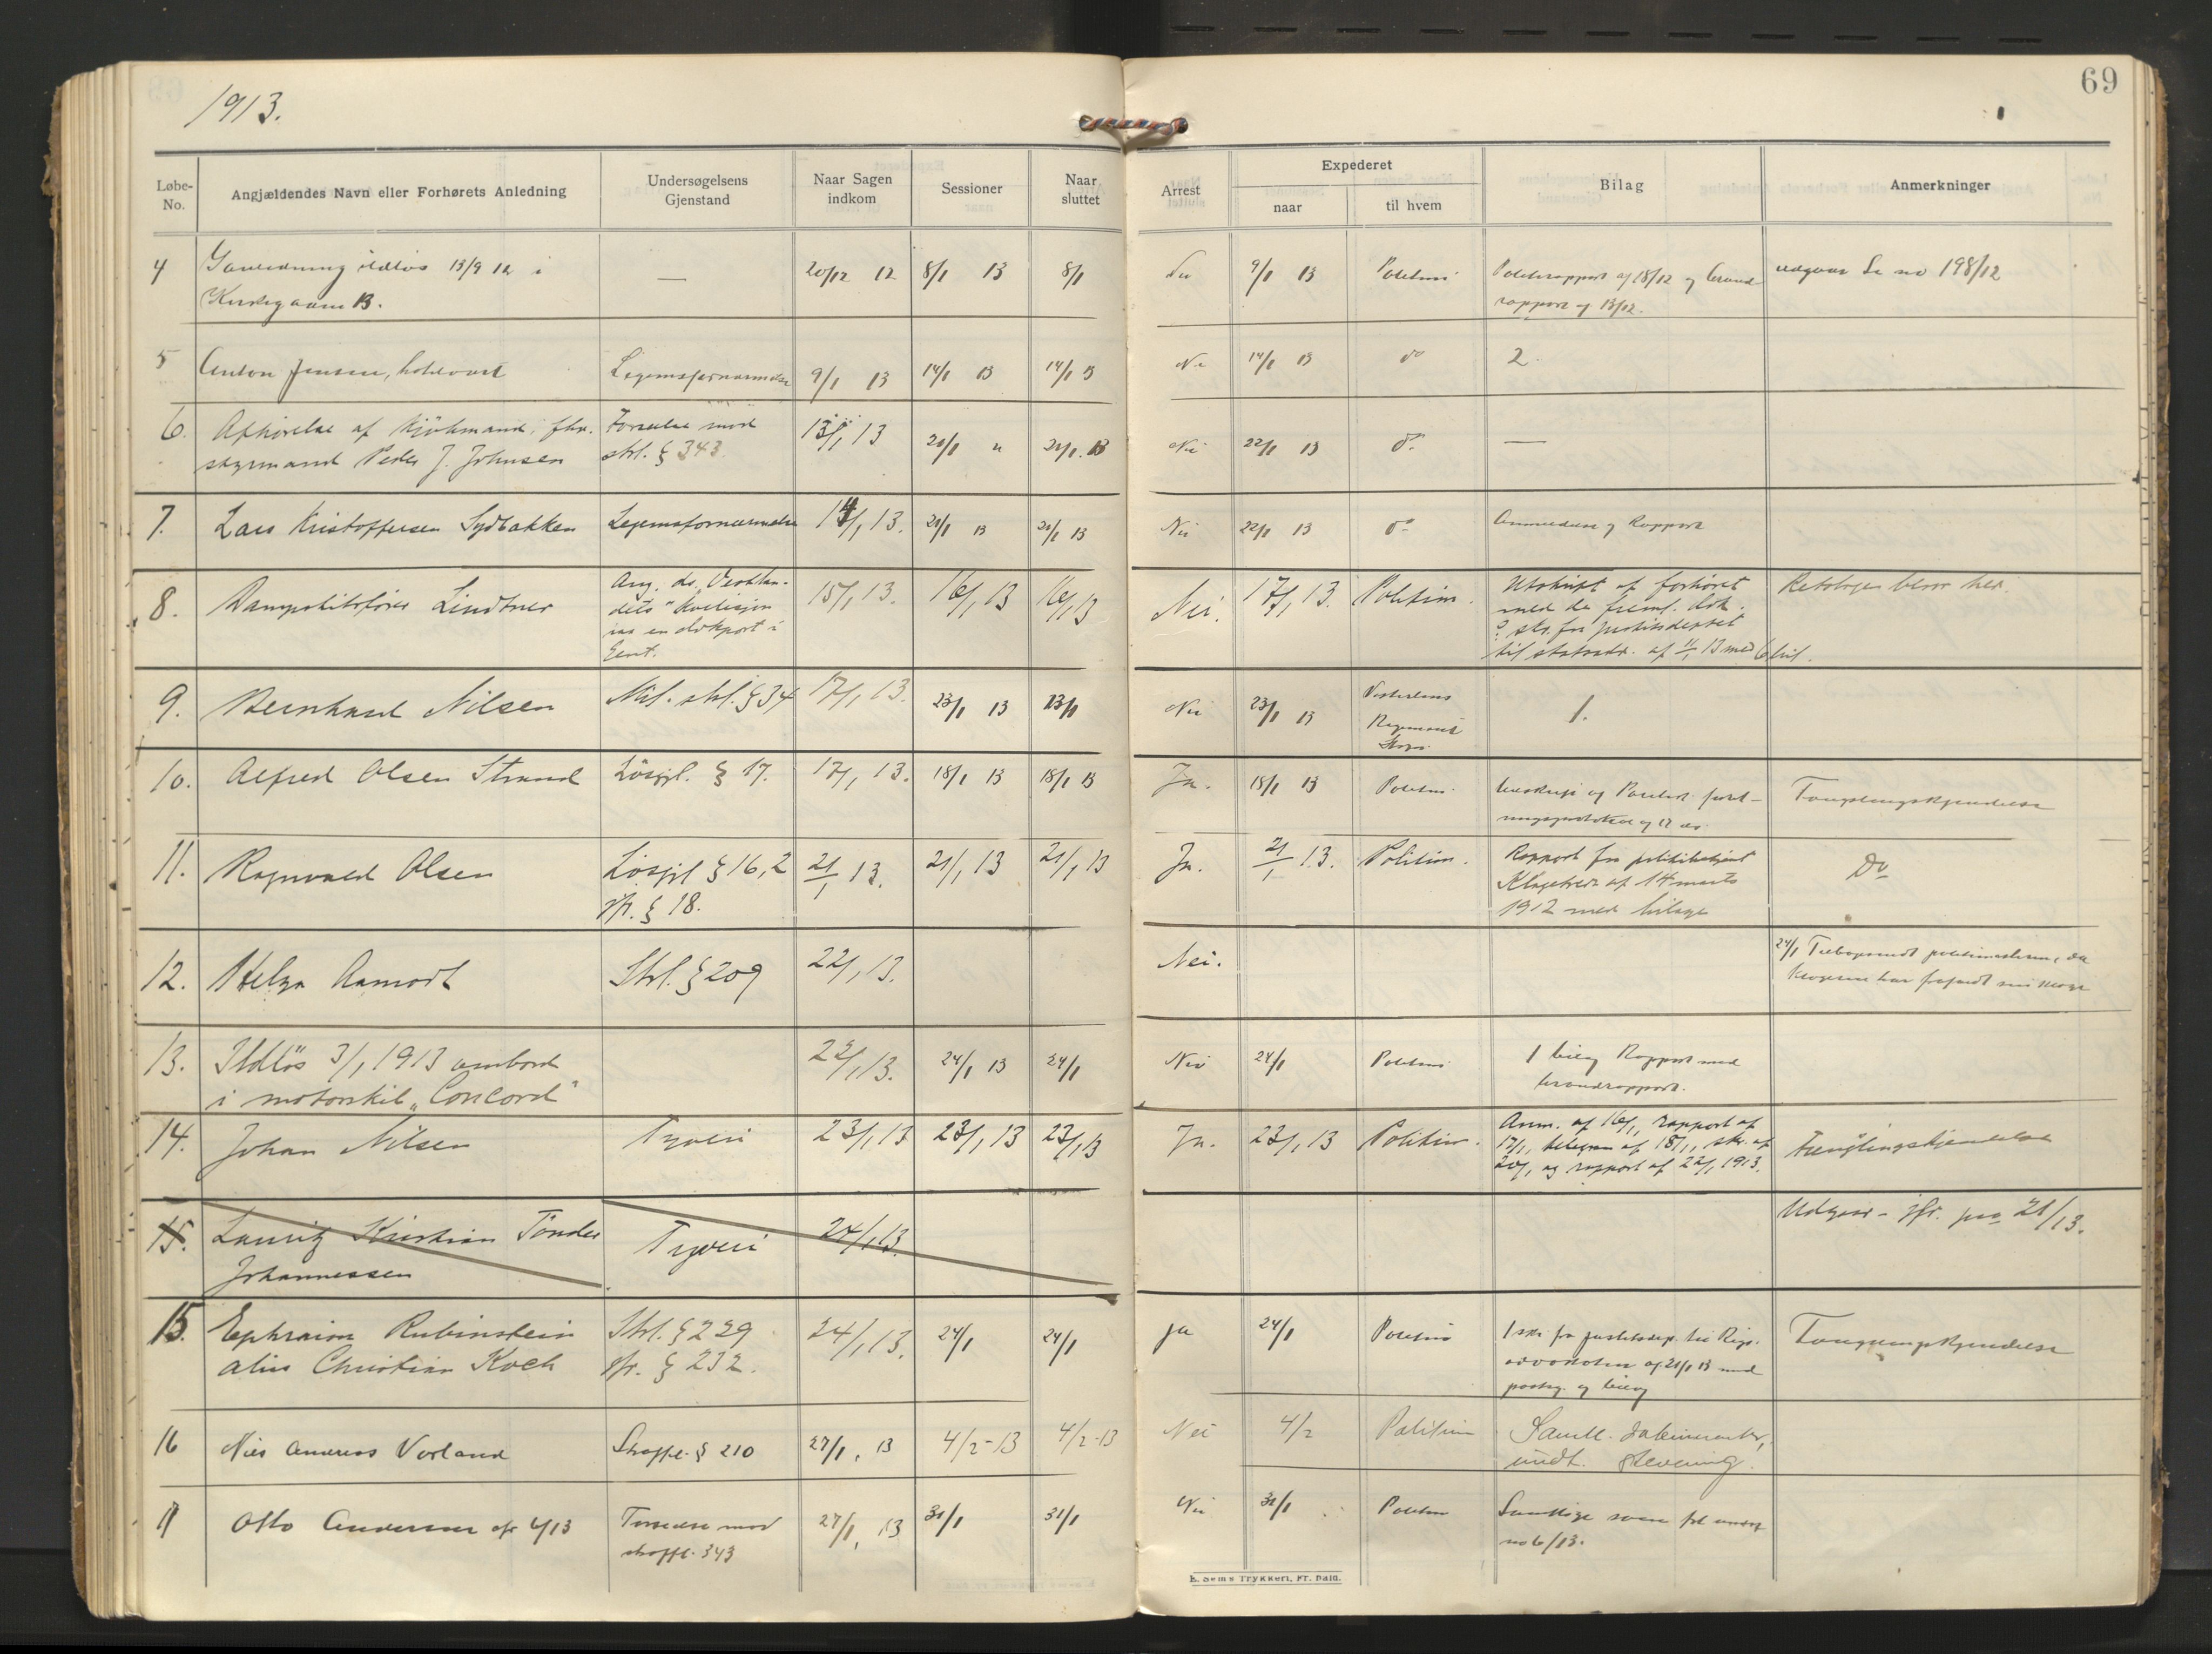 1913.
69
Løbe-No.
Angjældendes Navn eller Forhørets Anledning
Undersøgelsens Gjenstand
Naar Sagen indkom
Sessioner
Naar sluttet
Arrest
Expederet
naar
til hvem
Bilag
Anmerkninger
4 ildløs 13/9 12 i — 20/12 12 8/1 13 8/1 Nei 9/1 13 Politiet Politirapport af 18/12 og brand- udgaar Se no 198/12
B. rapport af 13/12.
5 Anton Jensen, Legemsfornærmelse 9/1 13 14/1 13 14/1 13 Nei 14/1 13 do 2.
6. Afhørelse af kjøbmand, fhv. Forseelse mod 13/1 13 21/1 " 21/1. 13 Nei 22/1 13 do —
styrmand Peder J. Johnsen strl. § 343.
7. Lars Kristoffersen Sydbakken Legemsfornærmelse 14/1 13. 21/1 13 21/1 13 Nei 22/1 13 do Anmeldelse og Rapport
8. Dampskibsfører Lindtner Ang. ds. Vestlan- 15/1 13. 16/1 13 16/1 13 Nei. 17/1 13. Politim. Utskrift af forhøret
dets" kollisjon med de freml. dok.
ins en dokport i skr. fra justitsdeptet
Gent. til statsadv. af 11/1 13 med 6 bil.
9. Bernhard Nilsen Mil. strl. § 34 17/1 13. 23/1 13 23/1 Nei 23/1 13 Vesterlens Regiments 1.
10. Alfred Olsen Strand Løsgjl. § 17. 17/1 13. 18/1 13 18/1 13 Ja. 18/1 13 Politim. Fængslingskjendelse
11. Ragnvald Olsen Løsgjl § 16, 2 21/1 13. 21/1 13 21/1 13 Ja. 21/1 13. Politim. Rapport fra politibetjent Do
jfr. § 18. af 14 marts
1912 med bilage
12. Helga Aamodt Strl. § 209 22/1 13. Nei. 24/1 Tilbagesendt politimesteren, da
klagerne har frafaldt sin klage
13. Ildløs 3/1 1913 ombord 22/1 13. 24/1 13 24/1 Nei 24/1 Politim. 1 bilag Rapport med
i motorskib „Concord" brandrapport.
14. Johan Nilsen Tyveri 23/1 13 23/1 13 23/1 13 Ja. 23/1 13 Politim. Anm. af 16/1, rapport af Fængslingskjendelse
17/1, telegram af 18/1, skr. af
20/1, og rapport af 22/1 1913.
15. Lauritz Kristian Tønder Tyveri 24/1 13. Udgaar - jfr. 21/13.
Johannessen
15. Ephraim Rubinstein Strl. § 229 24/1 13. 24/1 24/1 ja 24/1 Politim 1 skr fra justitsdep. til Rigs- Fængslingskjendelse
alias Christian Koch jfr. § 232. advokaten af 21/1 13 med
og bilag
16 Nils Andreas Vorland Straffel. § 210 27/1, 13 4/2-13 4/2-13 Nei 4/2 Politim Samtl. dokumenter,
undt. stevning.
17 Otto Andersen jfr 6/13 Forseelse mod 27/1, 13 31/1 31/1 Nei 31/1 Politim Samtlige
straffl. 343 no 6/13.
E. Sems Trykkeri, Fr.hald.